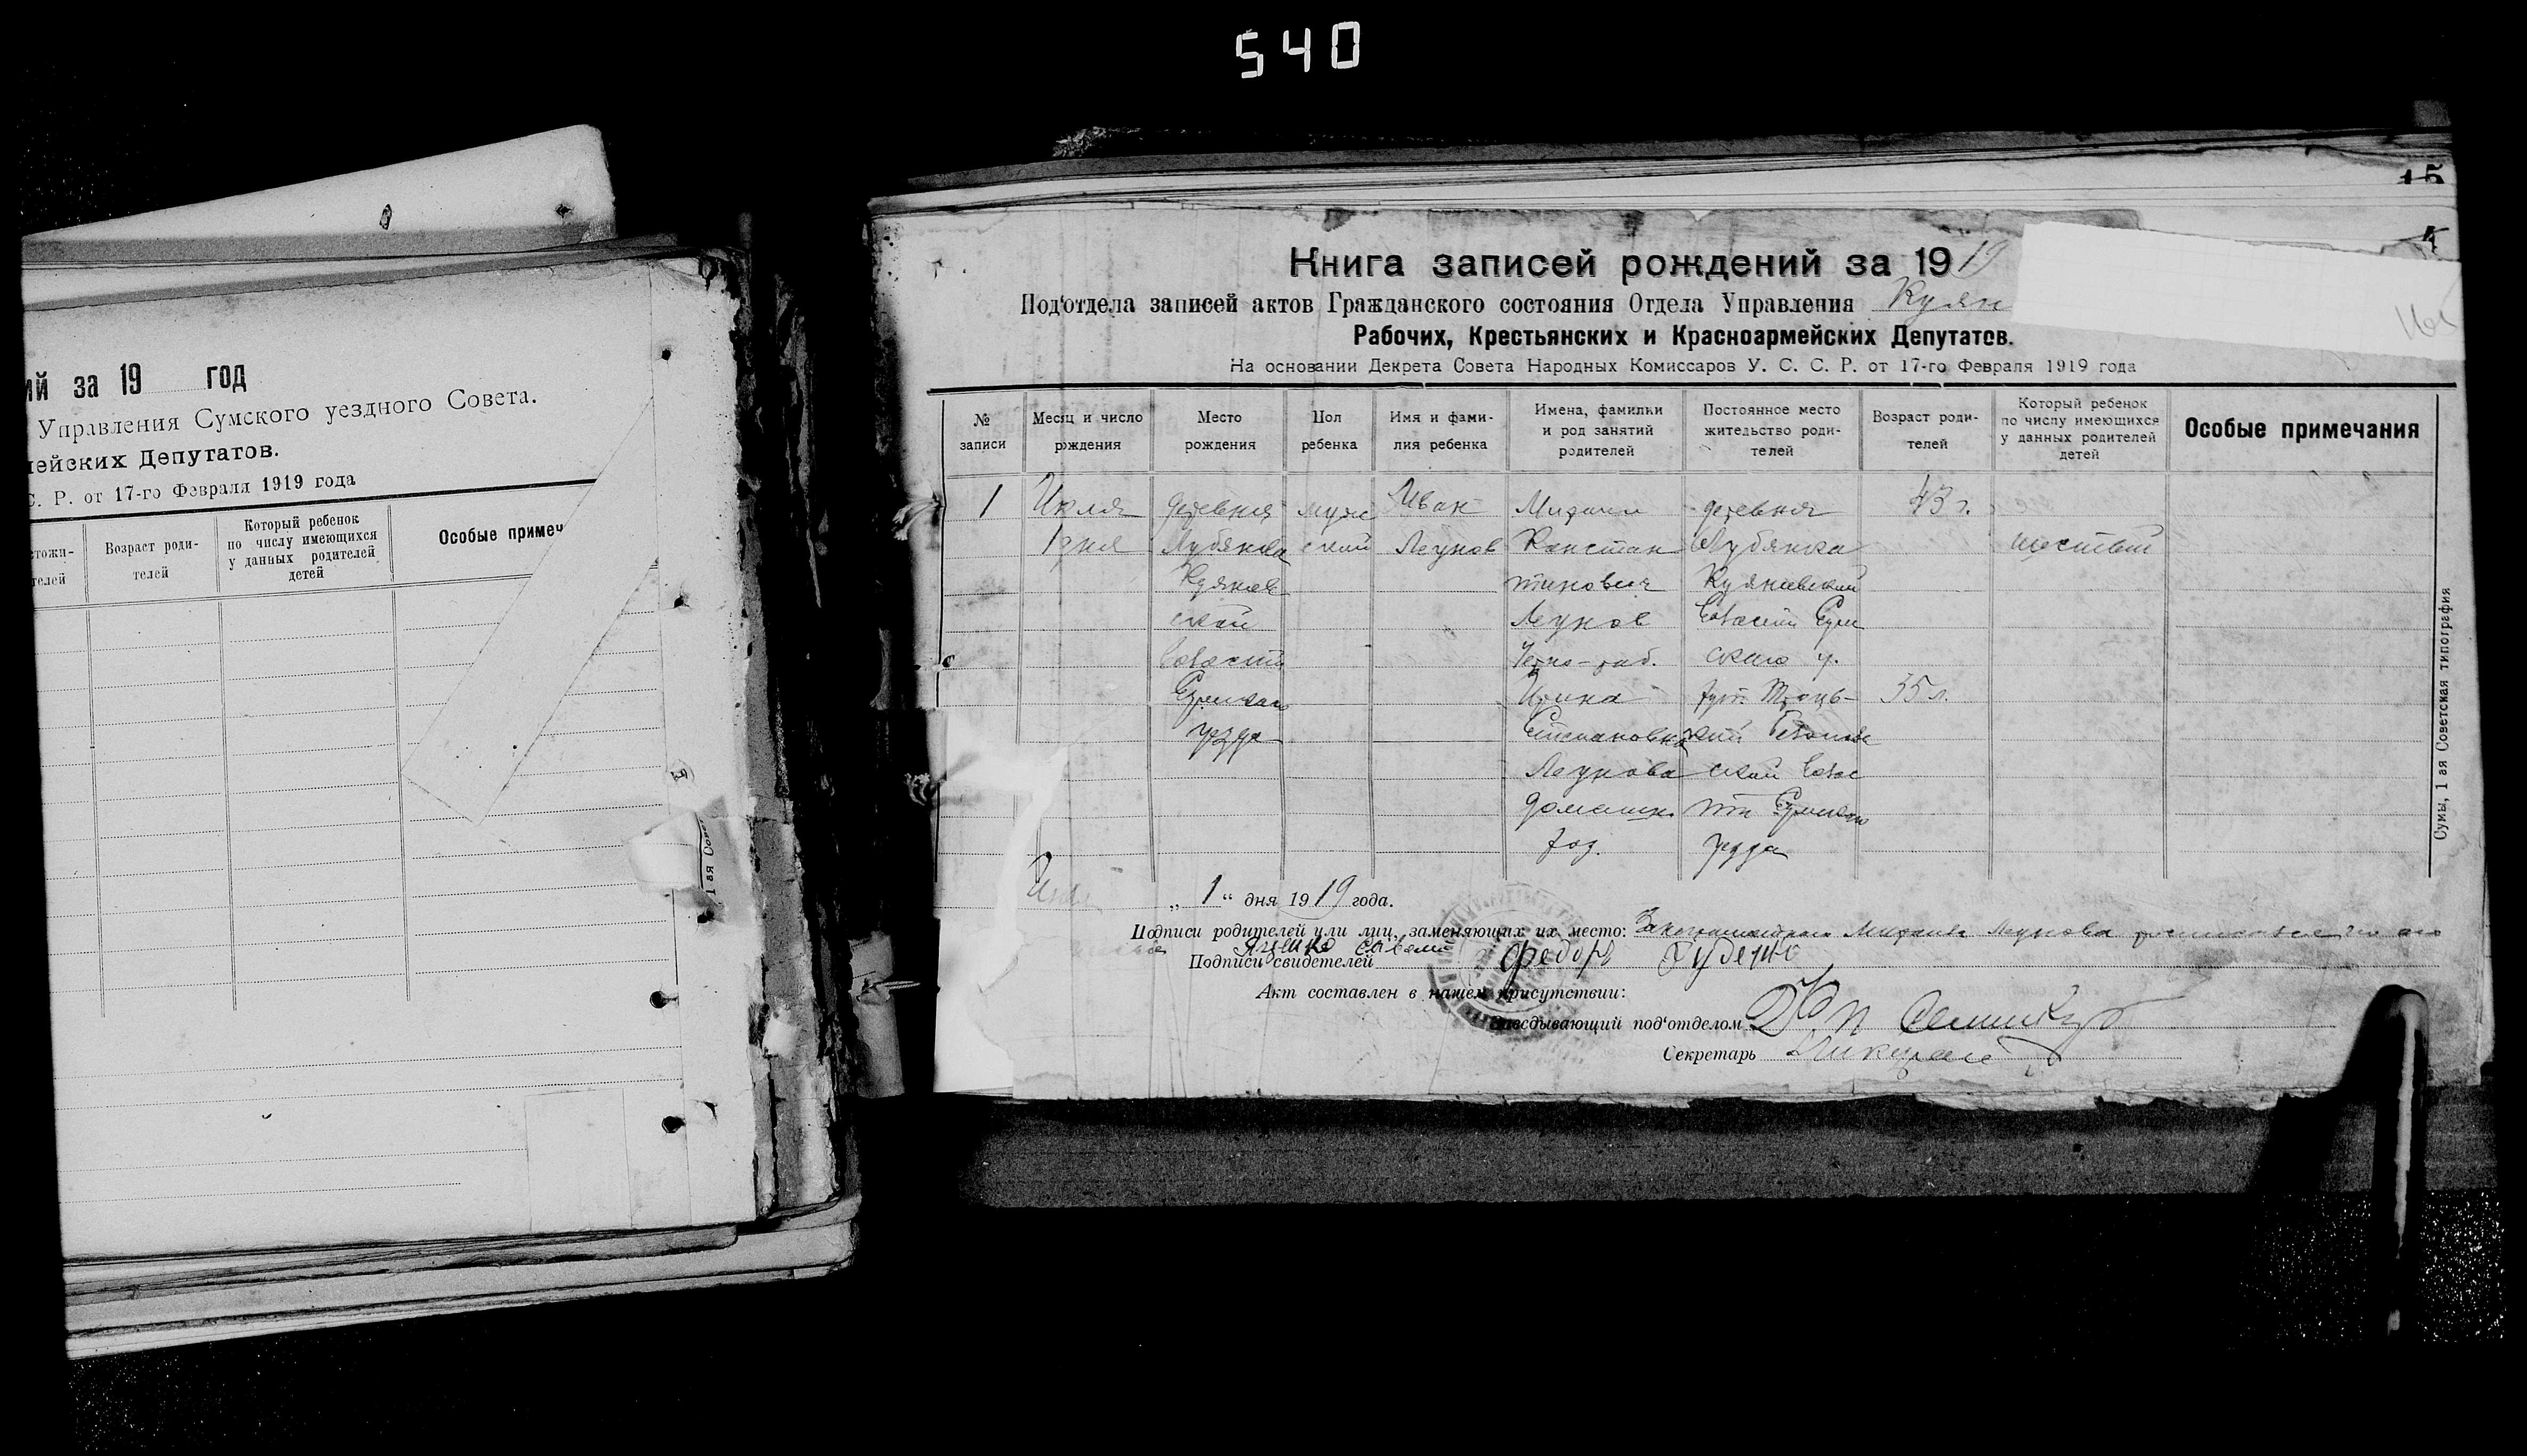 540
ий за 19 год
Управления Сумского уездного Совета.
ейских Депутатов.
С. Р. от 17-го Февраля 1919 года
Возраст роди-
телей
Который ребенок
по числу имеющихся
у данных родителей
детей
Особые примеч
15
4
Книга записей рождений за 1919
Под'отдела записей актов Гражданского состояния Отдела Управления Куян
Рабочих, Крестьянских и Красноармейских Депутатов.
На основании Декрета Совета Народных Комиссаров У. С. С. Р. от 17-го Февраля 1919 года
№
записи
Месяц и число
рждения
Место
рождения
Пол
ребенка
Имя и фами-
лия ребенка
Имена, фамилки
и род занятий
родителей
Постоянное место
жительство роди-
телей
Возраст роди-
телей
Который ребенок
по числу имеющихся
у данных родителей
детей
Особые примечания
1
Июля
1 дня
деревня
Лубянка
Куянов
ской
Волости
Сумскаго
уезда
муж
ской
Иван
Леунов
Михаил
Констан
тинович
Леунов
Черно-раб.
Ирина
Степановна
Леунова
домашн.
деревня
Лубянка
Куяновской
Волости Сум
скаго у.
ской Волос
ти Сумскаго
уезда
43 г.
35 л.
шестой
„ 1 “ дня 1919 года.
Подписи родителей или лиц, заменяющих их место: Михаила Леунова
Подписи свидетелей Федоръ
Акт составлен в нашем присутствии:
Заведывающий под'отделом
Секретарь
Сумы, 1 ая Советская типография